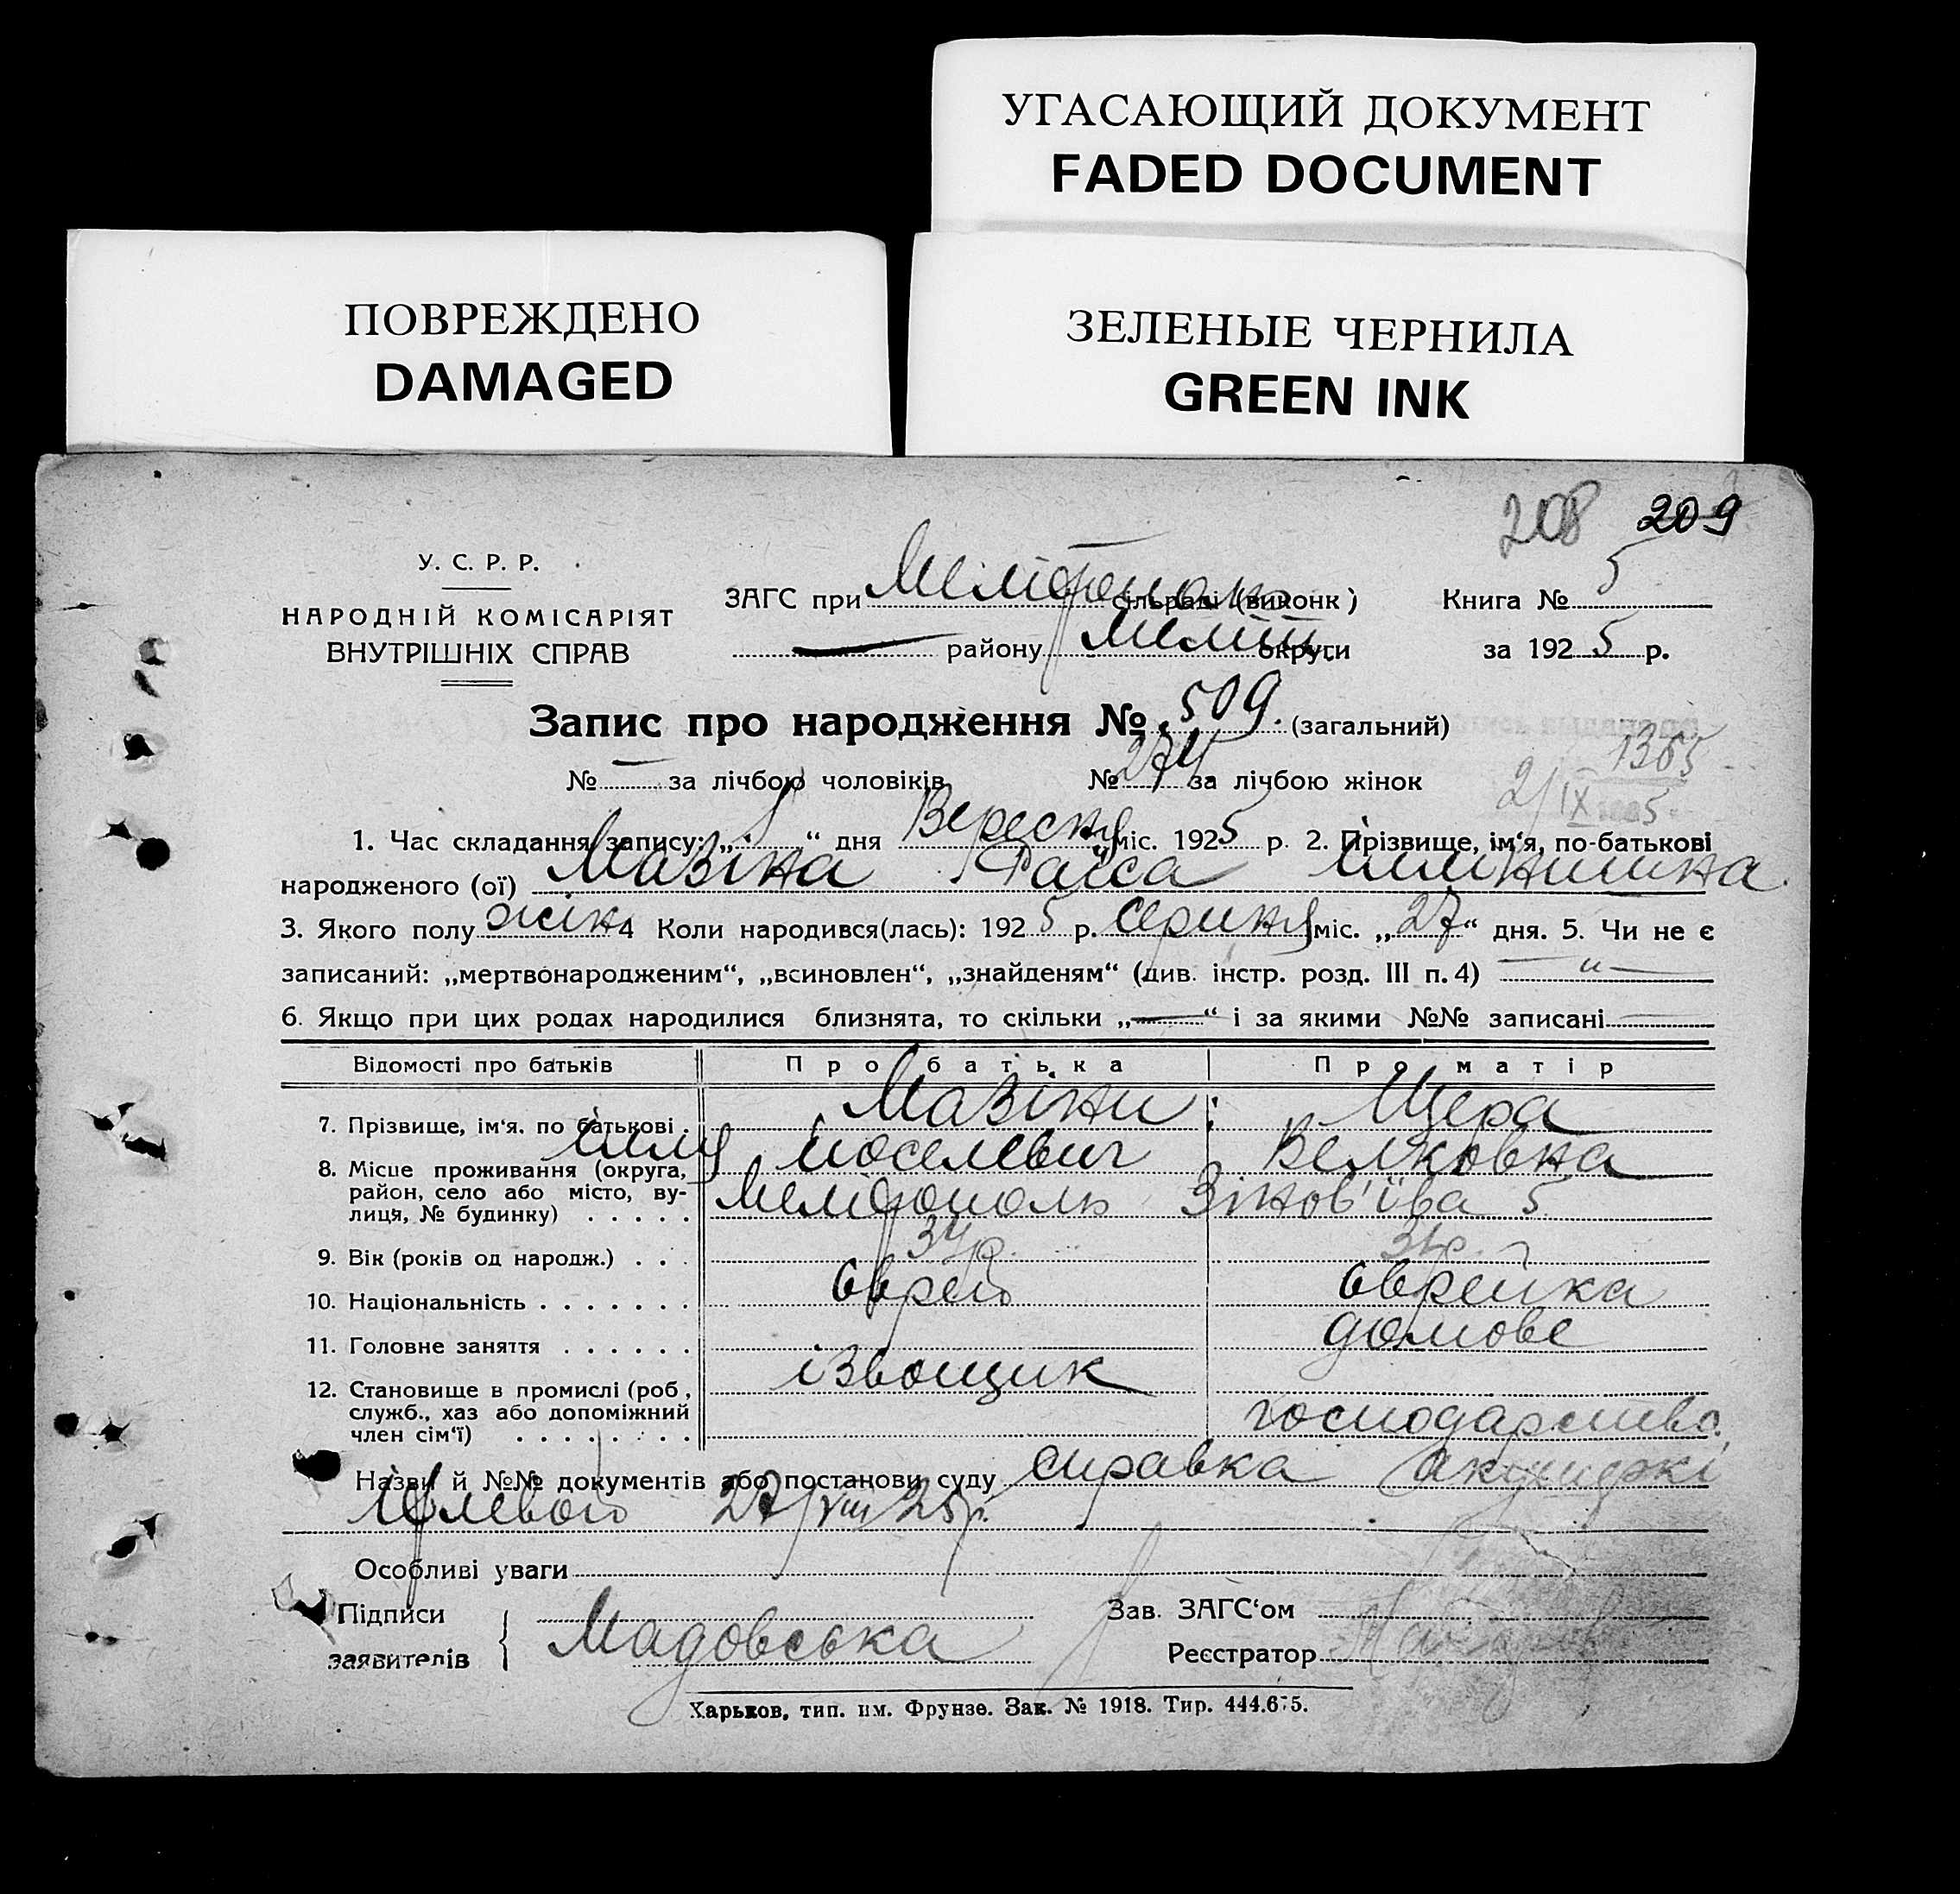 УГАСАЮЩИЙ ДОКУМЕНТ
FADED DOCUMENT
ПОВРЕЖДЕНО
DAMAGED
ЗЕЛЕНЫЕ ЧЕРНИЛА
GREEN INK
208 209
У. С. Р. Р.
НАРОДНІЙ КОМІСАРІЯТ
ВНУТРІШНІХ СПРАВ
ЗАГС при Мелітополь сільраді (виконк) Книга № 5
району Меліт. округи за 1925 р.
Запис про народження № 509. (загальний)
№ — за лічбою чоловіків № 274 за лічбою жінок
1365
2/IX 1925
1. Час складання запису: „ “ дня Вересня міс. 1925 р. 2. Прізвище, ім‘я, по-батькові
народженого (ої) Мазіна Раїса
3. Якого полу жін 4 Коли народився(лась): 1925 р. серпня міс. „27“ дня. 5. Чи не є
записаний: „мертвонародженим“, „всиновлен“, „знайденям“ (див. інстр. розд. III п. 4) — „ —
6. Якщо при цих родах народилися близнята, то скільки „—“ і за якими №№ записані
Відомості про батьків Про батька Про матір
7. Прізвище, ім‘я. по батькові . Мазіни: Щера
Йоселевич Велковна
8. Місце проживання (округа, район, село або місто, вулиця, № будинку) . . . . . Мелітополь Зінов'їва 5
9. Вік (років од народж.) . . . 34 р. 31 р.
10. Національність . . . . . . . єврей єврейка
11. Головне заняття . . . . . . ізвощик домове
12. Становище в промислі (роб, служб., хаз або допоміжний член сім‘ї) . . . . . . . . господарство
Назви й №№ документів або постанови суду справка акушеркі
27/VIII 25 р.
Особливі уваги
Підписи заявителів { Мадовська
Зав. ЗАГС‘ом
Реєстратор
Харьков, тип. им. Фрунзе. Зак. № 1918. Тир. 444.675.